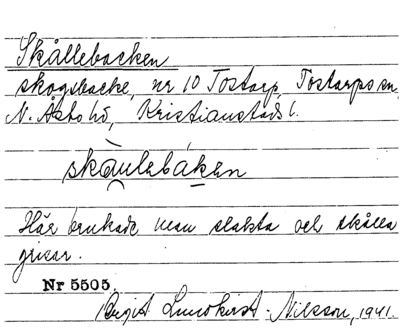 Skållebacken
skogsbacke, nr 10 Tostarp, Tostarps sn
N. Åsbo hd, Kristianstads l.
skåulebáken
Här brukade man slakta och skålla
grisar.
Nr 5505.
Birgit Lundkvist-Nilsson, 1941.